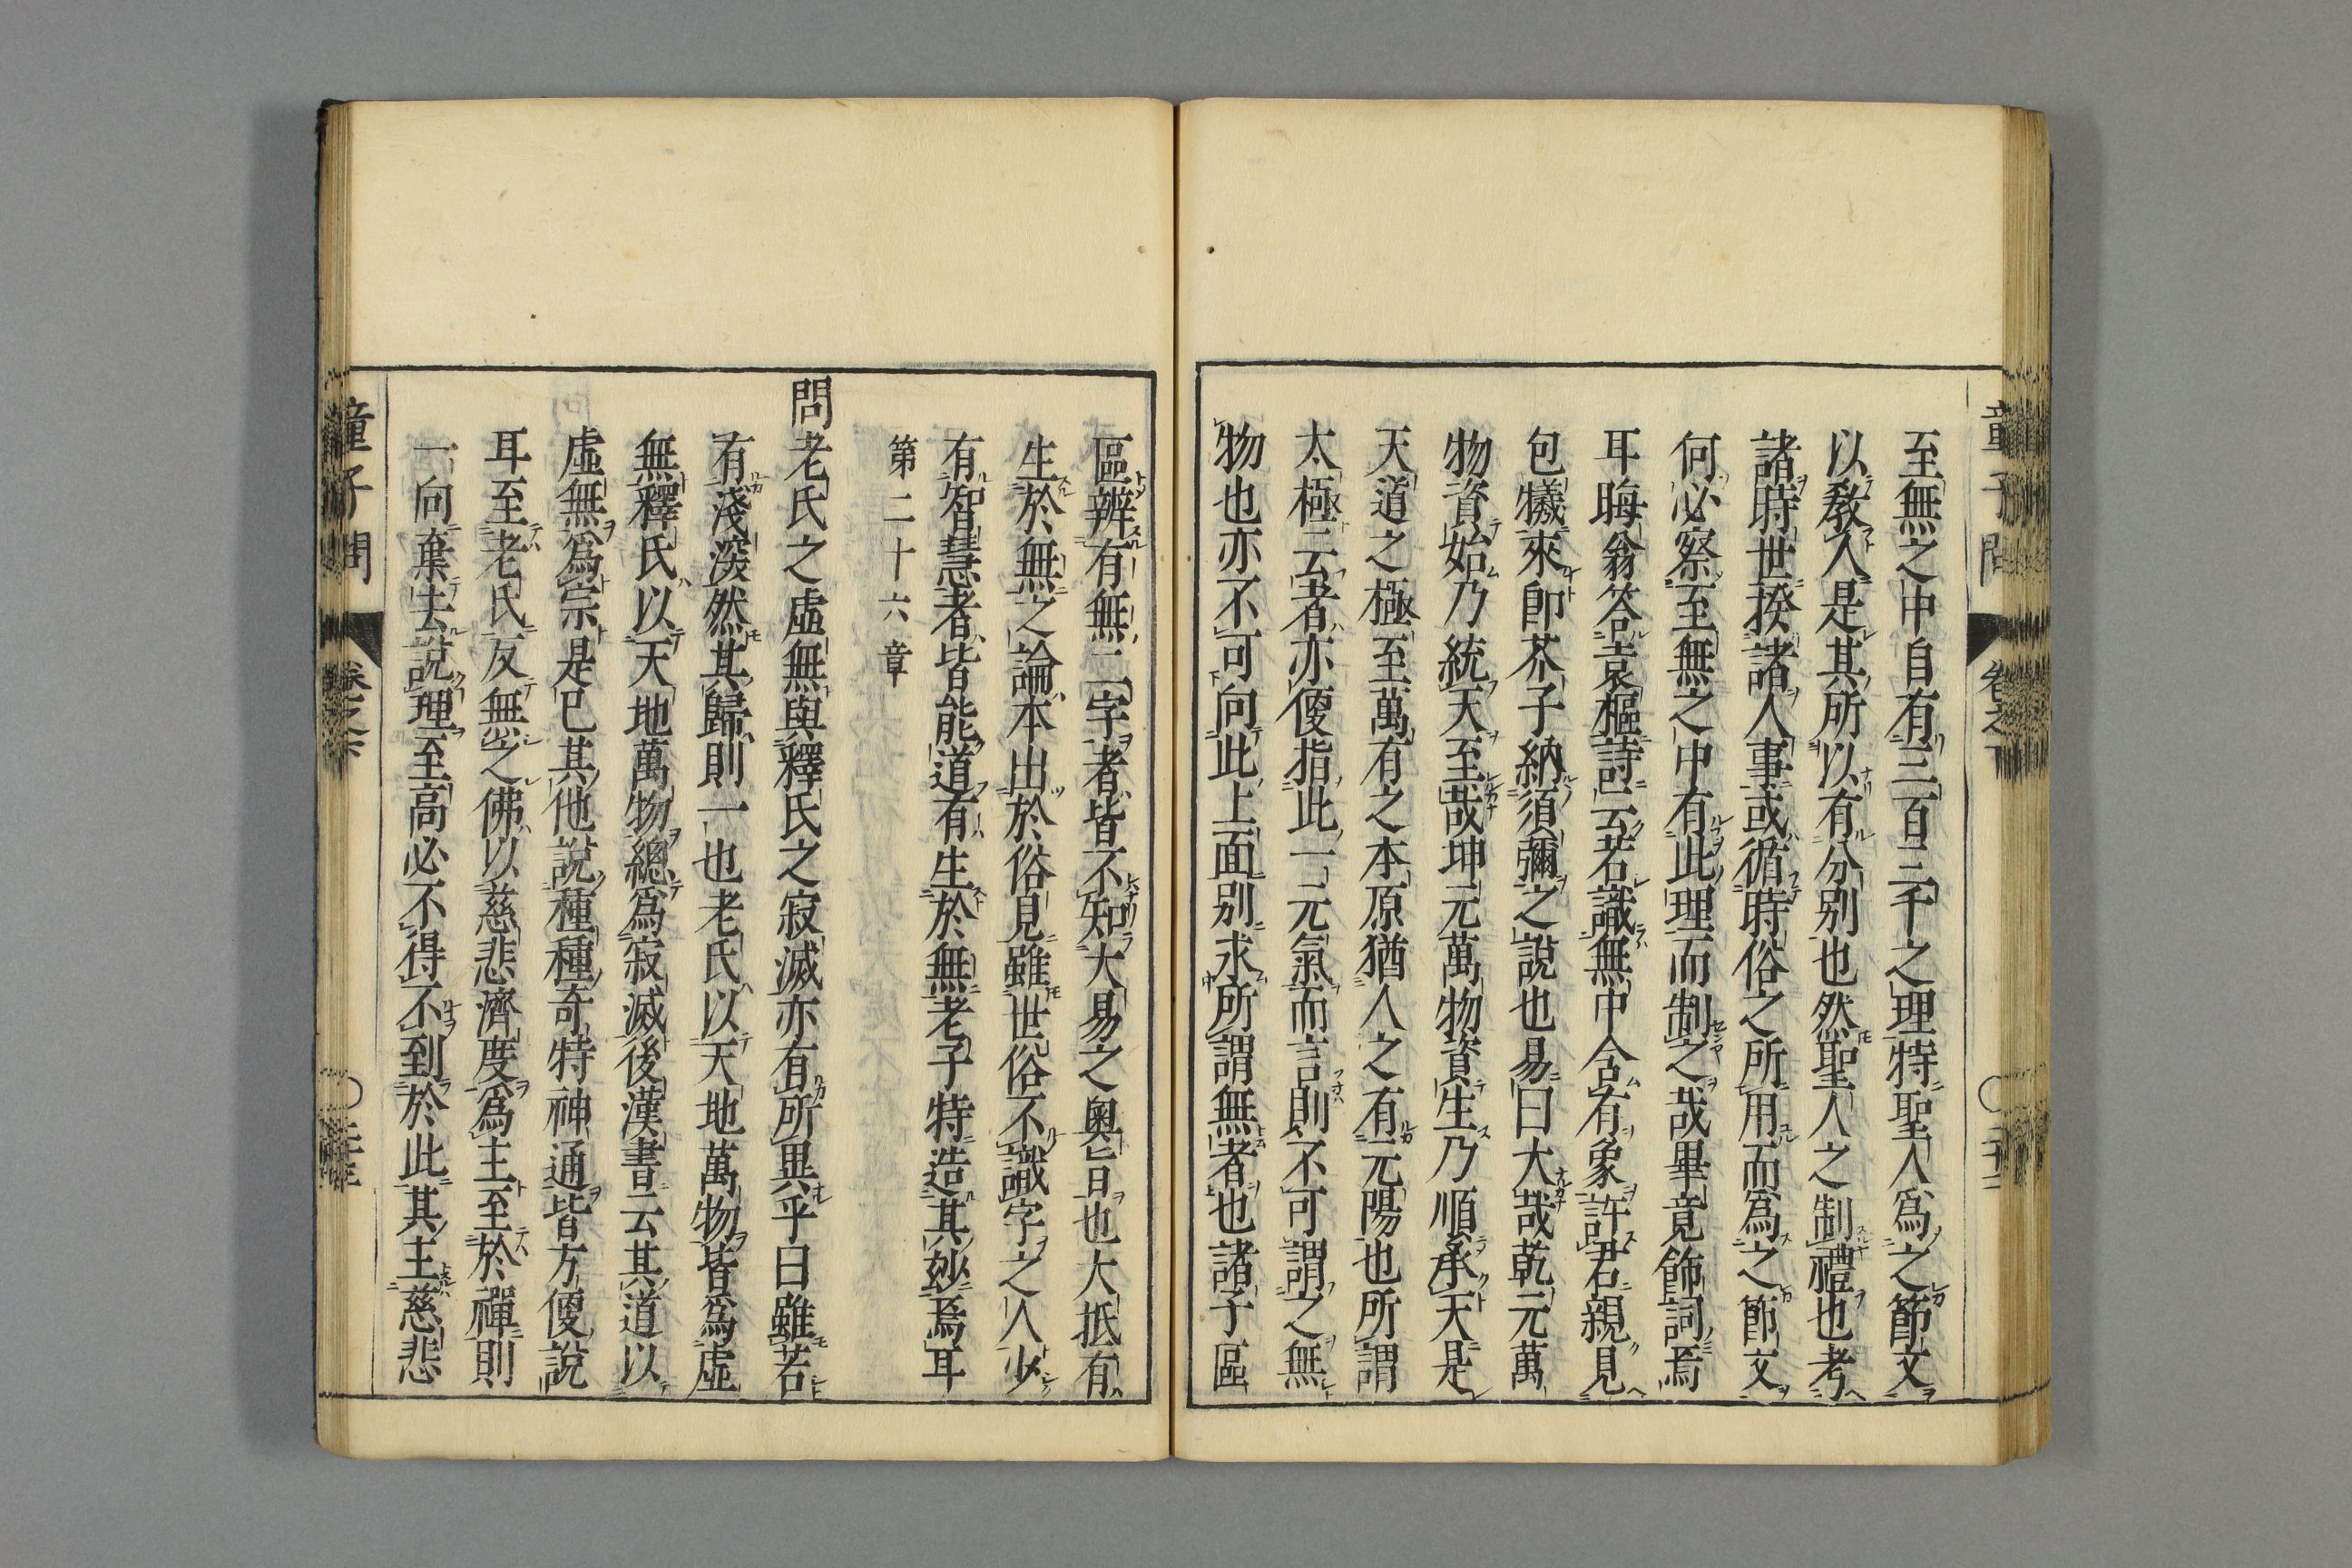 童子問 卷之下
至無之中自有三百三千之理特聖人爲之節文
以教人是其所以有分别也然聖人之制禮也考
諸時世揆諸人事或循時俗之所用而爲之節文
何必察至無之中有此理而制之哉畢竟飾詞焉
耳晦翁答袁樞詩云若識無中含有象許君親見
包犧來卽芥子納須彌之說也易曰大哉乾元萬
物資始乃統天至哉坤元萬物資生乃順承天是
天道之極至萬有之本原猶人之有元陽也所謂
太極云者亦便指此一元氣而言則不可謂之無
物也亦不可向此上面别求所謂無者也諸子區
區辨有無二字者皆不知大易之奧旨也大抵有
生於無之論本出於俗見雖世俗不識字之人少
有智慧者皆能道有生於無老子特造其玅焉耳
第二十六章
問老氏之虛無與釋氏之寂滅亦有所異乎曰雖若
有淺深然其歸則一也老氏以天地萬物皆爲虛
無釋氏以天地萬物總爲寂滅後漢書云其道以
虛無爲宗是已其他說種種奇特神通皆方便說
耳至老氏反無之佛以慈悲濟度爲主至於禪則
一向棄去說理至高必不得不到於此其主慈悲
童子問 卷之下